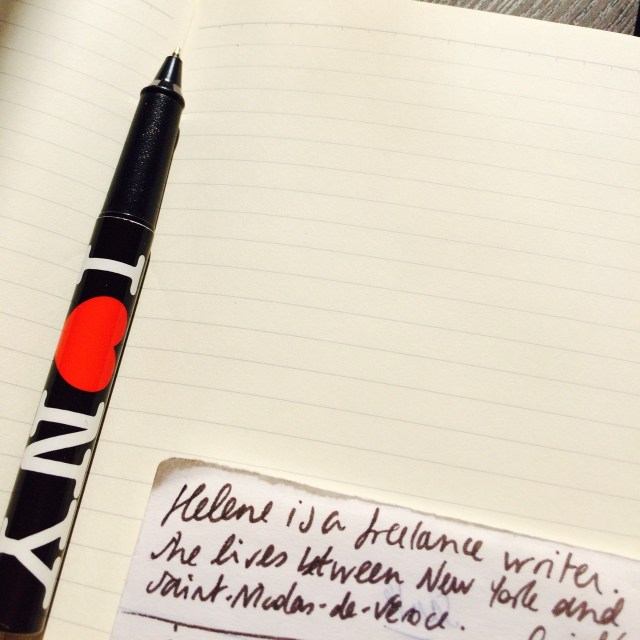 I NY
Helene is a freelance writer.
She lives between New York and
Saint-Nicolas-de-Véroce.